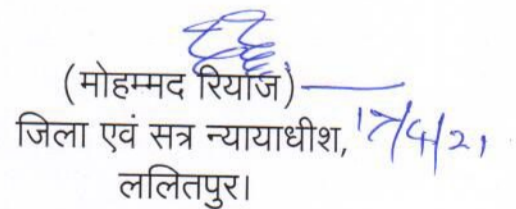 (मोहम्मद रियाज)
जिला एवं सत्र न्यायाधीश, 17/4/21
ललितपुर।